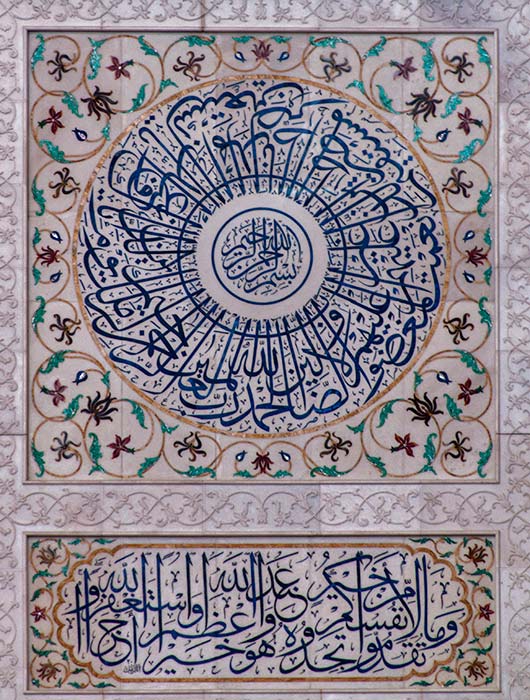 بسم الله الرحمن الرحيم
الحمد لله رب العالمين الرحمن الرحيم مالك يوم الدين إياك نعبد وإياك نستعين اهدنا الصراط المستقيم صراط الذين أنعمت عليهم غير المغضوب عليهم ولا الضالين
وما تقدموا لأنفسكم من خير تجدوه عند الله هو خيرا وأعظم أجرا واستغفروا الله